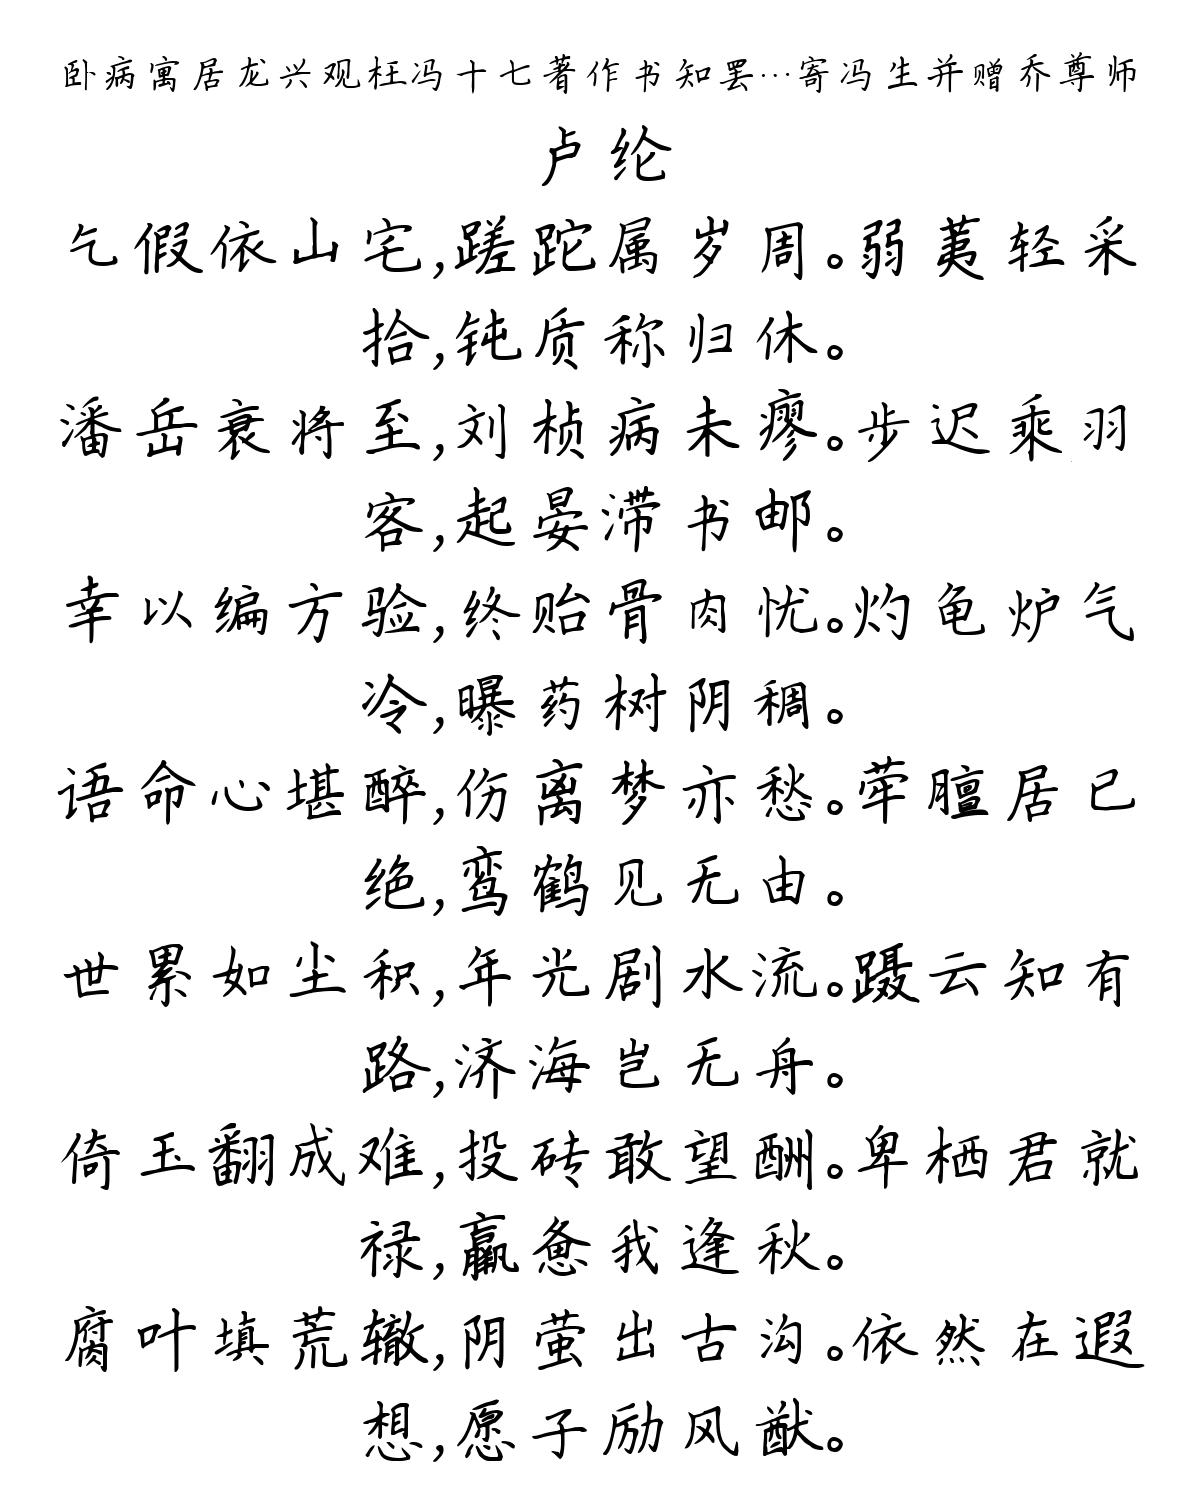 卧病寓居龙兴观枉冯十七著作书知罢…寄冯生并赠乔尊师
卢纶
乞假依山宅,蹉跎属岁周。弱荑轻采
拾,钝质称归休。
潘岳衰将至,刘桢病未瘳。步迟乘羽
客,起晏滞书邮。
幸以编方验,终贻骨肉忧。灼龟炉气
冷,曝药树阴稠。
语命心堪醉,伤离梦亦愁。荤膻居已
绝,鸾鹤见无由。
世累如尘积,年光剧水流。蹑云知有
路,济海岂无舟。
倚玉翻成难,投砖敢望酬。卑栖君就
禄,羸惫我逢秋。
腐叶填荒辙,阴萤出古沟。依然在遐
想,愿子励风猷。